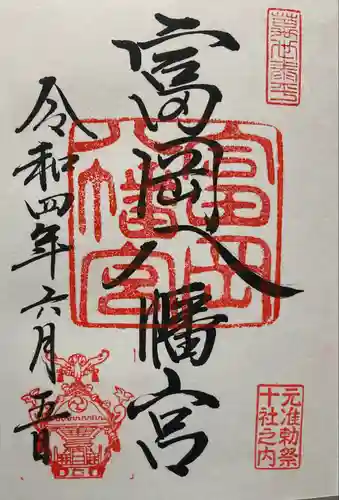 萬世泰平
富岡八幡宮
富岡八幡宮
令和四年六月五日
元准勅祭
十社之内